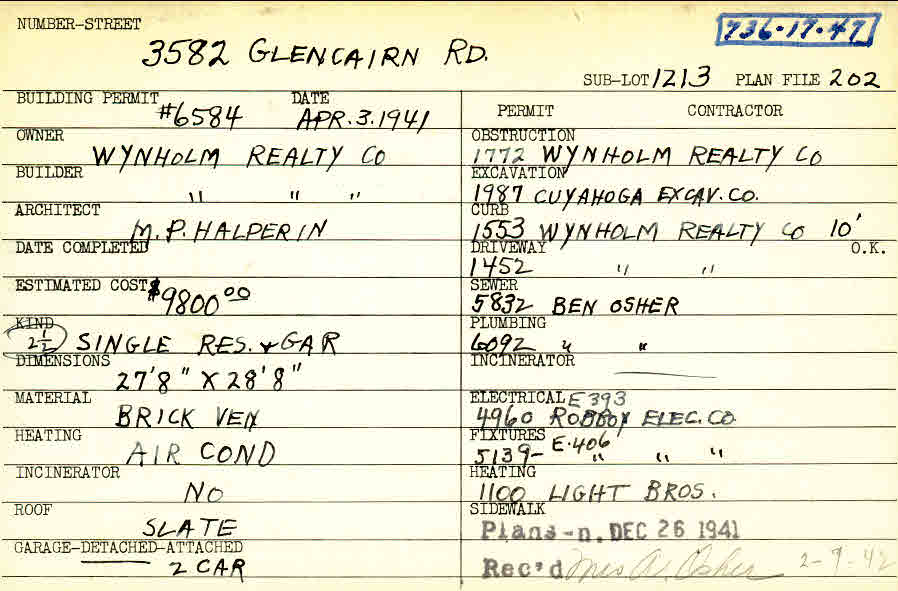 NUMBER-STREET
736-17-47
3582 GLENCAIRN RD.
SUB-LOT 1213 PLAN FILE 202
BUILDING PERMIT DATE
#6584 APR. 3. 1941
OWNER
WYNHOLM REALTY CO
BUILDER
" " "
ARCHITECT
M. P. HALPERIN
DATE COMPLETED
ESTIMATED COST
$9800.00
KIND
2½ SINGLE RES. & GAR
DIMENSIONS
27'8" X 28'8"
MATERIAL
BRICK VEN
HEATING
AIR COND
INCINERATOR
NO
ROOF
SLATE
GARAGE-DETACHED-ATTACHED
2 CAR
PERMIT CONTRACTOR
OBSTRUCTION
1772 WYNHOLM REALTY CO
EXCAVATION
1987 CUYAHOGA EXCAV. CO.
CURB
1553 WYNHOLM REALTY CO 10'
DRIVEWAY O.K.
1452 " "
SEWER
5832 BEN OSHER
PLUMBING
6092 " "
INCINERATOR
ELECTRICAL E393
4960 ROBBOY ELEC. CO
FIXTURES E-406
5139- " " "
HEATING
1100 LIGHT BROS.
SIDEWALK
Plans-n. DEC 26 1941
Rec'd Mrs A. Osher 2-9-42